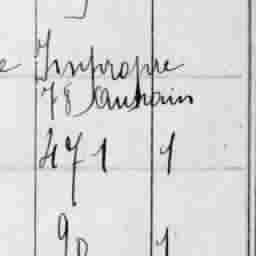 Impropre
78 Jaurrain
471 1
90 1